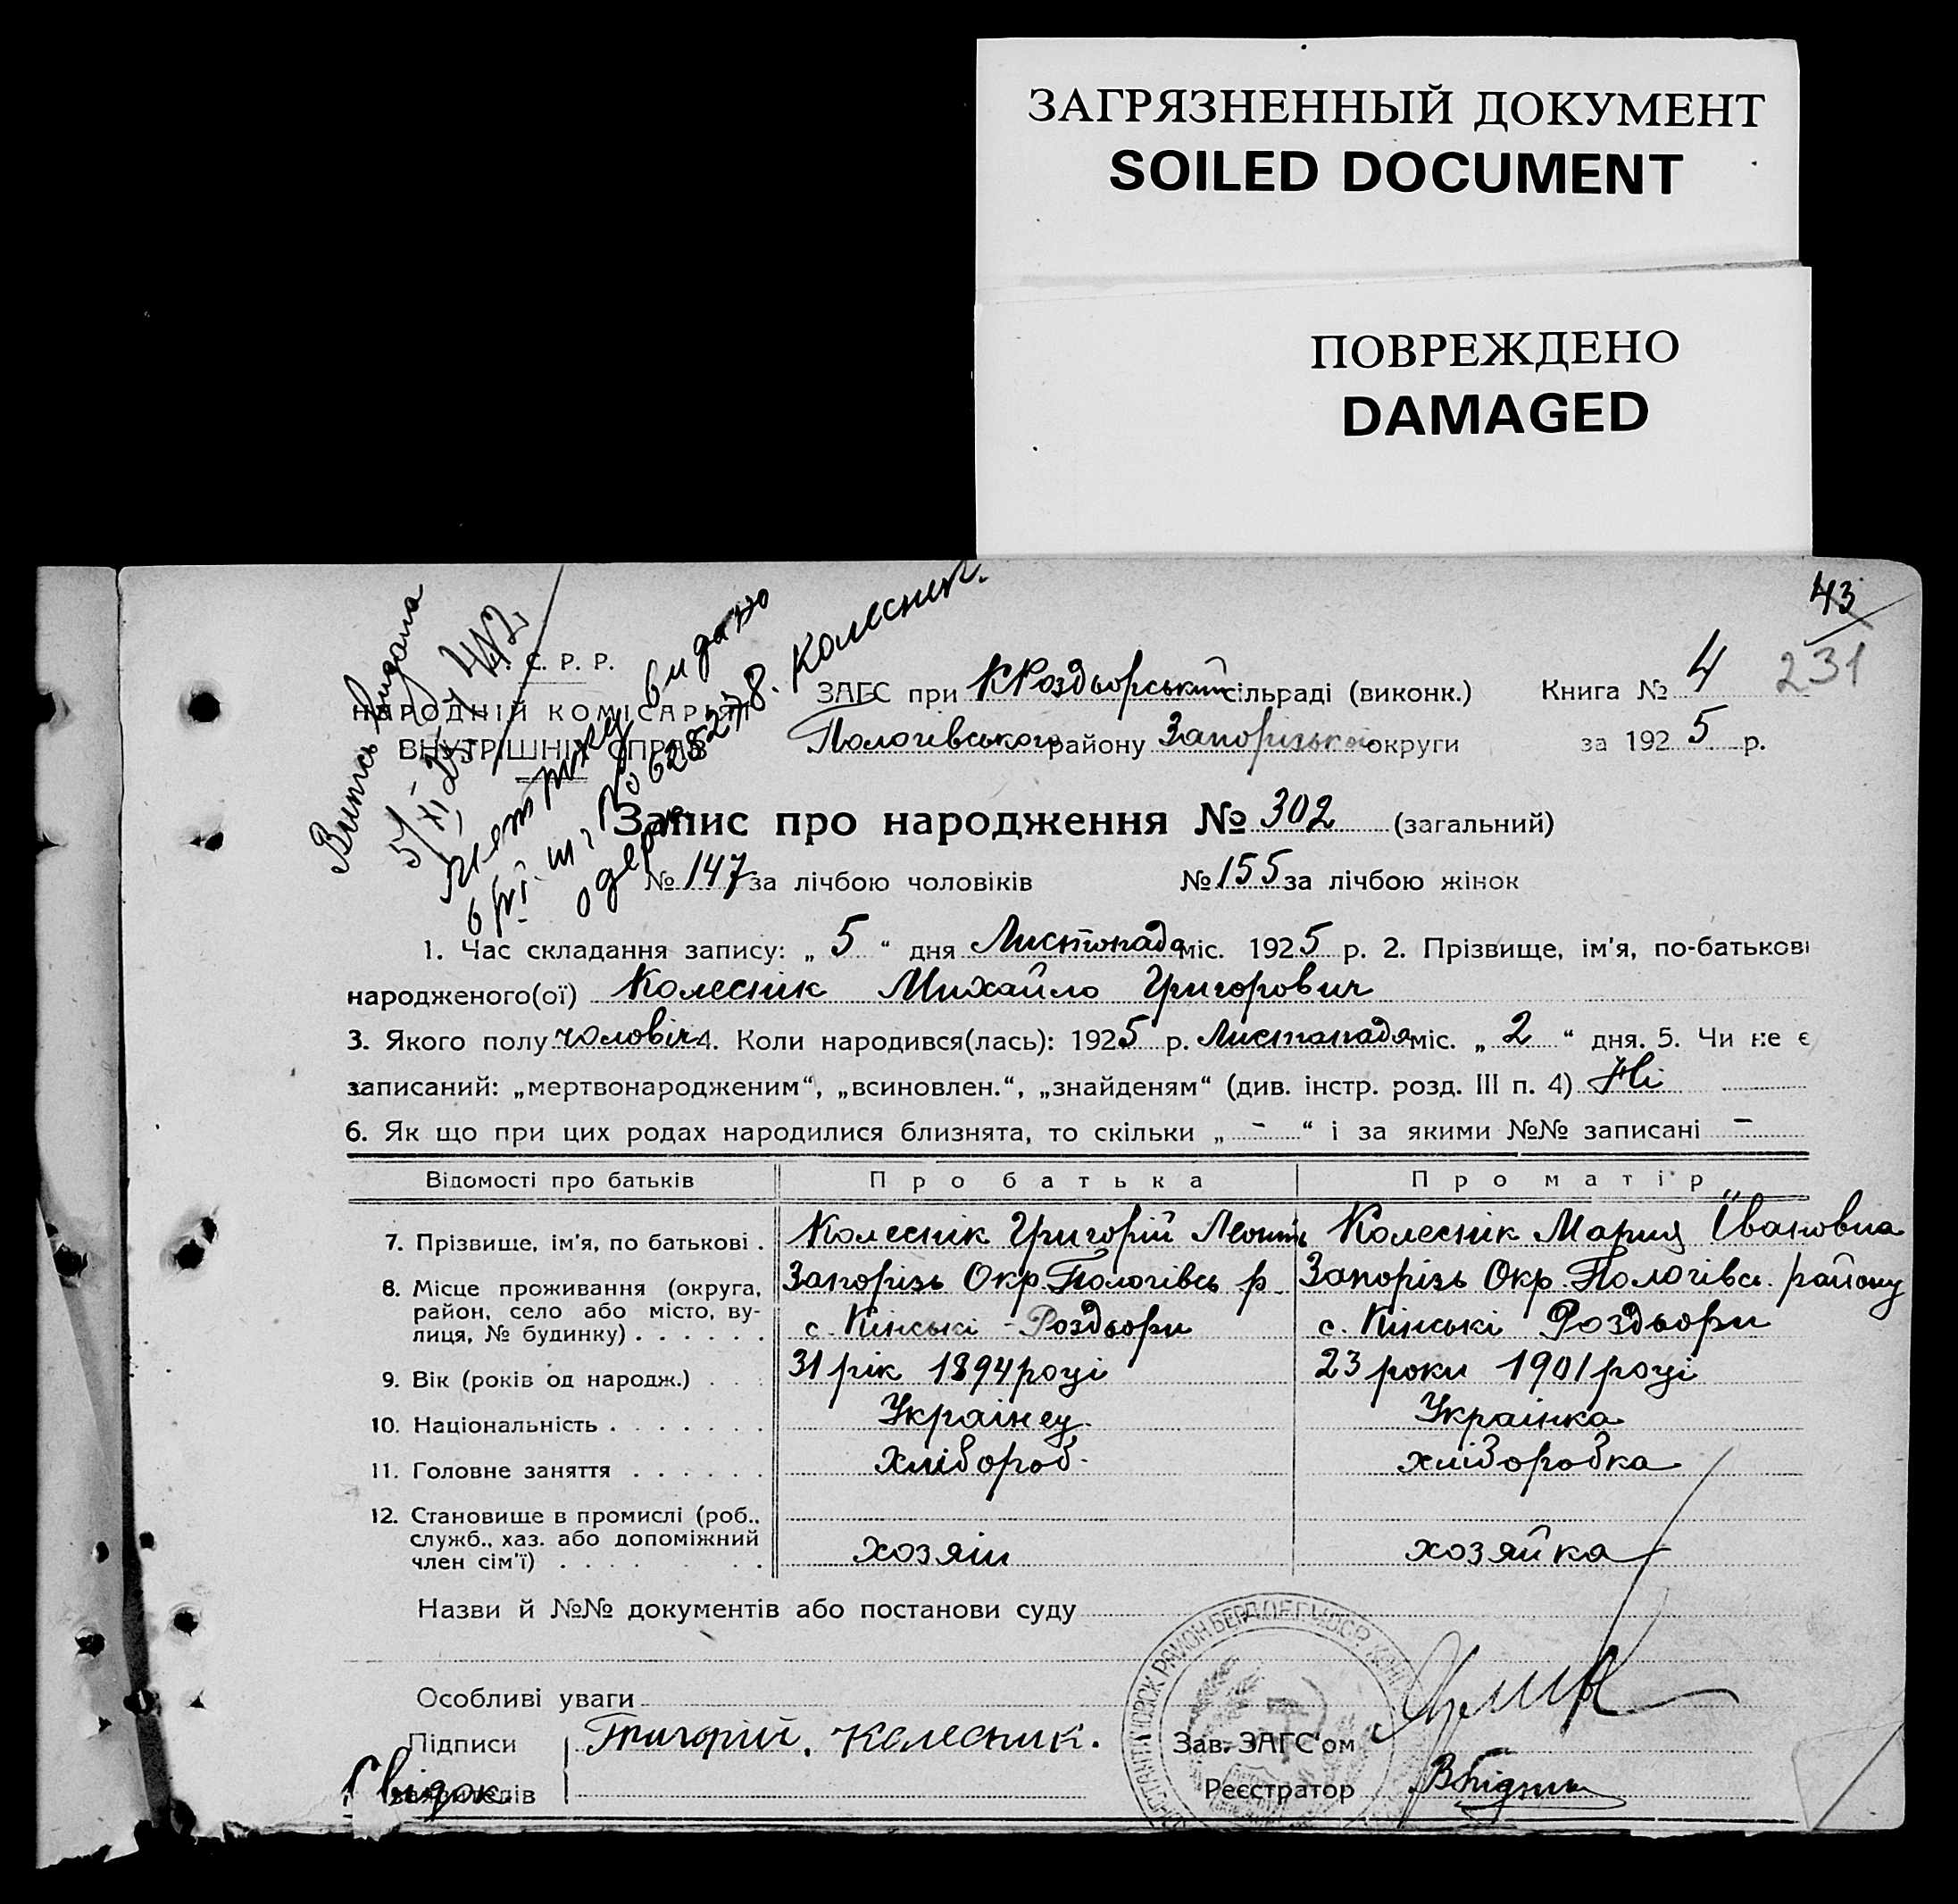 ЗАГРЯЗНЕННЫЙ ДОКУМЕНТ
SOILED DOCUMENT
ПОВРЕЖДЕНО
DAMAGED
43
231
Випись видана
5/XI 25 442
видано
628527
одерж. Колесник.
С. Р. Р.
НАРОДНІЙ КОМІСАРІЯТ
ВНУТРІШНІХ СПРАВ
ЗАГС при КРоздорський сільраді (виконк.) Книга № 4
Пологівського району Запорізької округи за 1925 р.
Запис про народження № 302 (загальний)
№ 147 за лічбою чоловіків № 155 за лічбою жінок
1. Час складання запису: „ 5 “ дня Листопада міс. 1925 р. 2. Прізвище, ім'я, по-батькові
народженого(ої) Колеснік Михайло Григорович
3. Якого полу чоловіч 4. Коли народився(лась): 1925 р. Листопада міс. „ 2 “ дня. 5. Чи не є
записаний: „мертвонародженим“, „всиновлен.“, „знайденям“ (див. інстр. розд. III п. 4) Ні
6. Як що при цих родах народилися близнята, то скільки „ - “ і за якими №№ записані -
Відомості про батьків Про батька Про матір
7. Прізвище, ім'я, по батькові . Колеснік Григорій Леонть Колеснік Мария Івановна
8. Місце проживання (округа, район, село або місто, вулиця, № будинку) . . . . . . Запорізь Окр. Пологівсь р. Запорізь Окр. Пологівсь. району
с. Кінські - Роздьори с. Кінські Роздьори
9. Вік (років од народж.) . . . 31 рік 1894 році 23 роки 1901 році
10. Національність . . . . . . . Украінец. Украінка
11. Головне заняття . . . . . . хлібороб. хліборобка
12. Становище в промислі (роб., служб., хаз. або допоміжний член сім'ї) . . . . хозяін хозяйка
Назви й №№ документів або постанови суду
Особливі уваги
Підписи Григорій. Колесник. Зав. ЗАГС'ом
заявителів Свідок Реєстратор